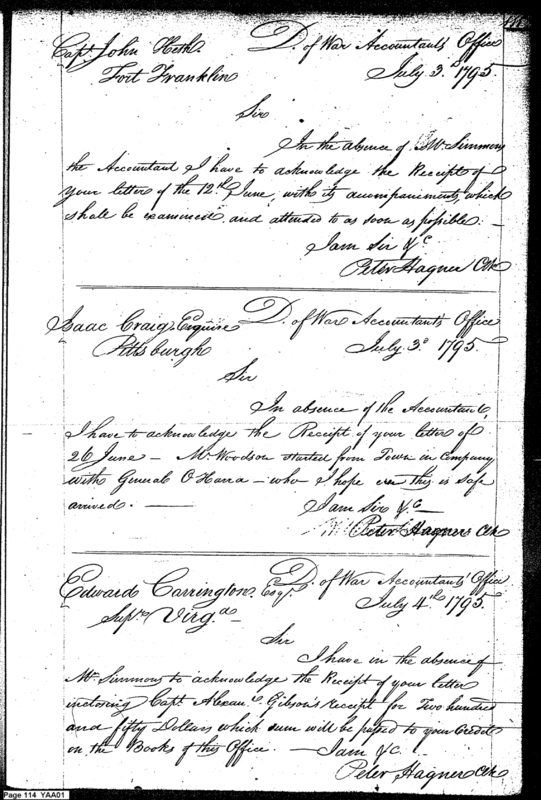 Capt. John Heth. D. of War Accountants Office
Fort Franklin July 3.d 1795.
Sir
In the absence of Mr Simmons
the Accountant I have to acknowledge the Receipt of
your letter of the 12th June, with its accompaniments, which
shall be examined and attended to as soon as possible. —
I am Sir &c
Peter Hagner Clk
Isaac Craig Esquire D. of War Accountants Office
Pittsburgh July 3d 1795.
Sir
In absence of the Accountant,
I have to acknowledge the Receipt of your letter of
26 June — Mr Woodson started from Town in Company
with General O Harra — who I hope ere this is safe
arrived. —
I am Sir &c —
Peter Hagner Clk
Edward Carrington. Esqr. D. of War Accountants' Office
Supr. Virga— July 4th 1795.
Sir
I have in the absence of
Mr Simmons to acknowledge the Receipt of your letter
inclosing Capt. Alexanr. Gibson's receipt for Two hundred
and fifty Dollars which sum will be passed to your Credit
on the Books of this Office. — I am &c.
Peter Hagner Clk
Page 114 YAA01